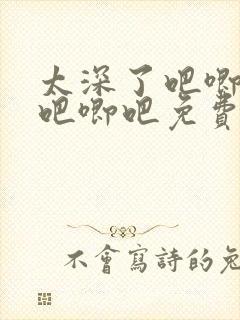 太深了吧唧
吧唧吧免費
不會寫詩的兔